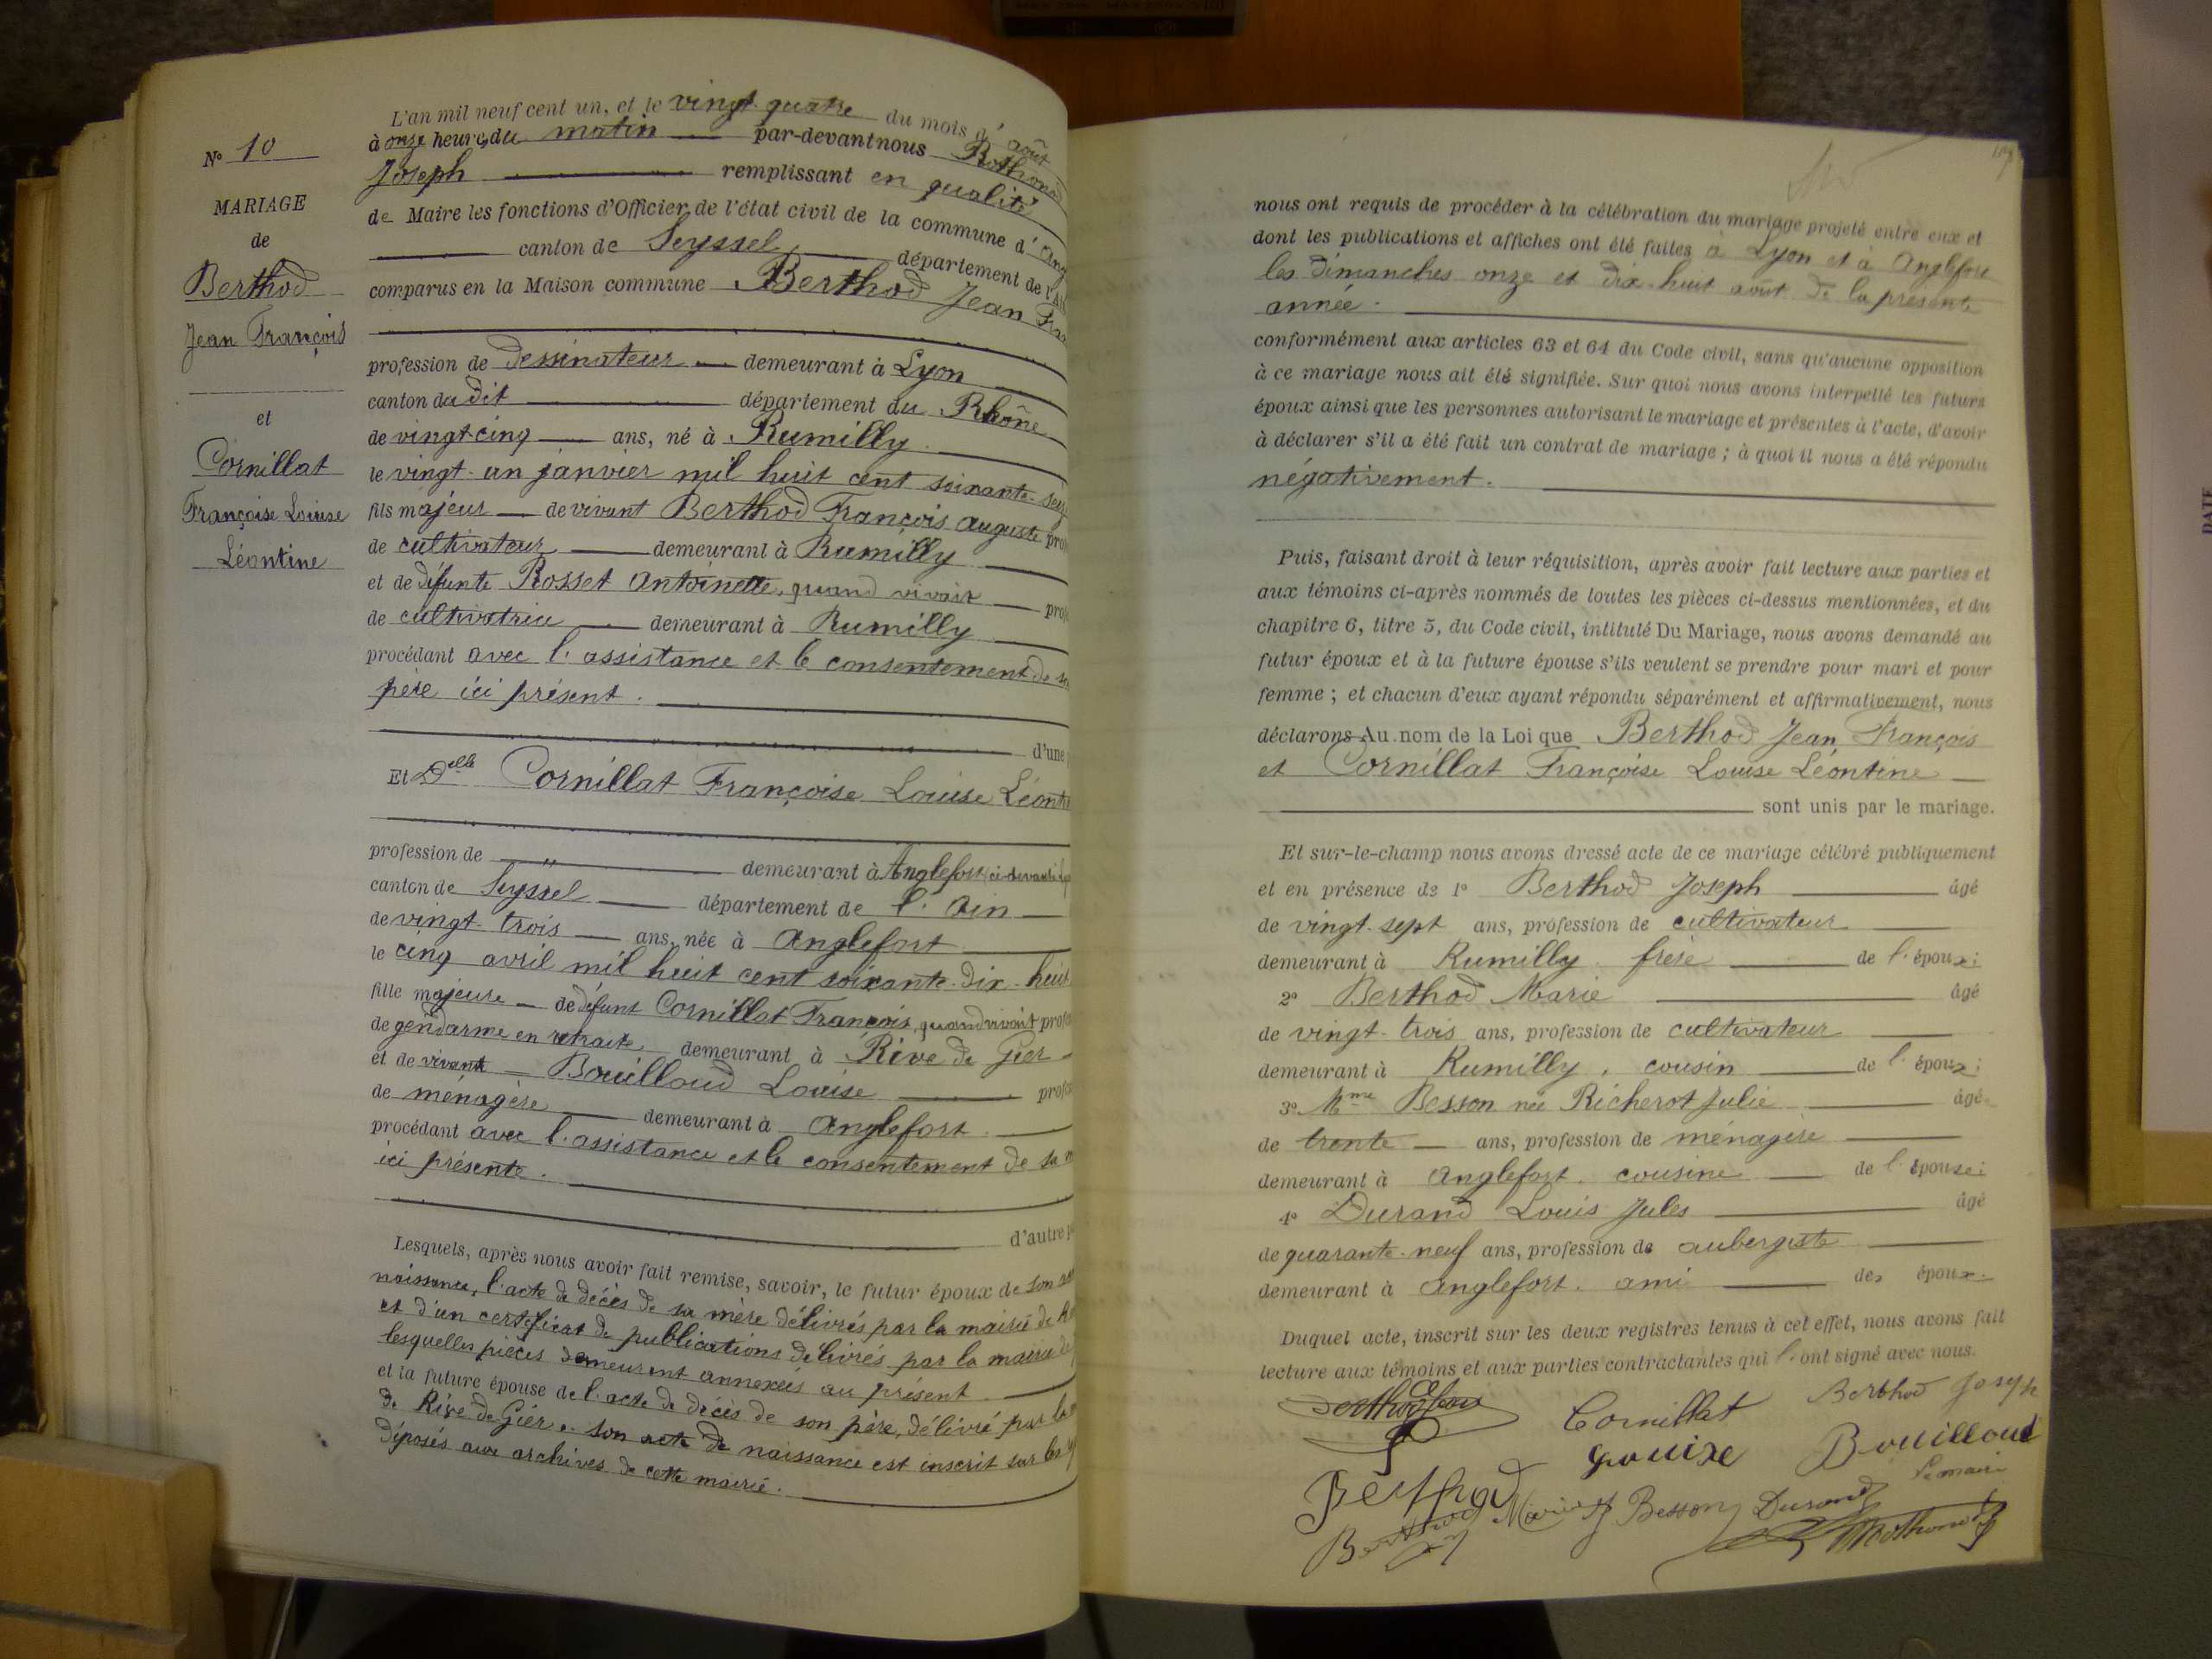 N° 10
MARIAGE
de
Berthod
Jean François
et
Cornillat
Françoise Louise
Léontine
L'an mil neuf cent un, et le vingt-quatre du mois d'août
à onze heures du matin par-devant nous Rothonod
Joseph remplissant en qualité
de Maire les fonctions d'Officier de l'état civil de la commune d'Ang
canton de Seyssel département de l'Ain
comparus en la Maison commune Berthod Jean Fra
profession de dessinateur demeurant à Lyon
canton du dit département du Rhône
de vingt-cinq ans, né à Rumilly
le vingt-un janvier mil huit cent soixante-seize
fils majeur de vivant Berthod François Auguste prof
de cultivateur demeurant à Rumilly
et de défunte Rosset Antoinette, quand vivait prof
de cultivatrice demeurant à Rumilly
procédant avec l'assistance et le consentement de son
père ici présent.
d'une p
Et Delle Cornillat Françoise Louise Léonti
profession de " demeurant à Anglefort, ci-devant
canton de Seyssel département de l'Ain
de vingt-trois ans, née à Anglefort
le cinq avril mil huit cent soixante-dix-huit
fille majeure de défunt Cornillat François, quand vivait profe
de gendarme en retraite demeurant à Rive de Gier
et de vivante Bouilloud Louise profe
de ménagère demeurant à Anglefort
procédant avec l'assistance et le consentement de sa m
ici présente.
d'autre pa
Lesquels, après nous avoir fait remise, savoir, le futur époux de son
naissance, l'acte de décès de sa mère délivrés par la mairie de
et d'un certificat de publications délivrés par la mairie de
lesquelles pièces demeurent annexées au présent
et la future épouse de l'acte de décès de son père, délivré par la
de Rive de Gier. son acte de naissance est inscrit sur les
déposés aux archives de cette mairie.
nous ont requis de procéder à la célébration du mariage projeté entre eux et
dont les publications et affiches ont été faites à Lyon et à Anglefort
les dimanches onze et dix-huit août de la présente
année.
conformément aux articles 63 et 64 du Code civil, sans qu'aucune opposition
à ce mariage nous ait été signifiée. Sur quoi nous avons interpellé les futurs
époux ainsi que les personnes autorisant le mariage et présentes à l'acte, d'avoir
à déclarer s'il a été fait un contrat de mariage ; à quoi il nous a été répondu
négativement.
Puis, faisant droit à leur réquisition, après avoir fait lecture aux parties et
aux témoins ci-après nommés de toutes les pièces ci-dessus mentionnées, et du
chapitre 6, titre 5, du Code civil, intitulé Du Mariage, nous avons demandé au
futur époux et à la future épouse s'ils veulent se prendre pour mari et pour
femme ; et chacun d'eux ayant répondu séparément et affirmativement, nous
déclarons Au nom de la Loi que Berthod Jean François
et Cornillat Françoise Louise Léontine
sont unis par le mariage.
Et sur-le-champ nous avons dressé acte de ce mariage célébré publiquement
et en présence de 1° Berthod Joseph âgé
de vingt-sept ans, profession de cultivateur
demeurant à Rumilly frère de l'époux;
2° Berthod Marie âgé
de vingt-trois ans, profession de cultivateur
demeurant à Rumilly, cousin de l'époux;
3° Mme Besson née Richerot Julie âgée
de trente ans, profession de ménagère
demeurant à Anglefort. cousine de l'épouse;
4° Durand Louis Jules âgé
de quarante-neuf ans, profession de aubergiste
demeurant à Anglefort. ami des époux.
Duquel acte, inscrit sur les deux registres tenus à cet effet, nous avons fait
lecture aux témoins et aux parties contractantes qui l'ont signé avec nous.
Berthod Jean Cornillat Berthod Joseph
Louise Bouilloud
Le maire
Berthod Marie J Besson Durand
Berthod Rothonod
DATE